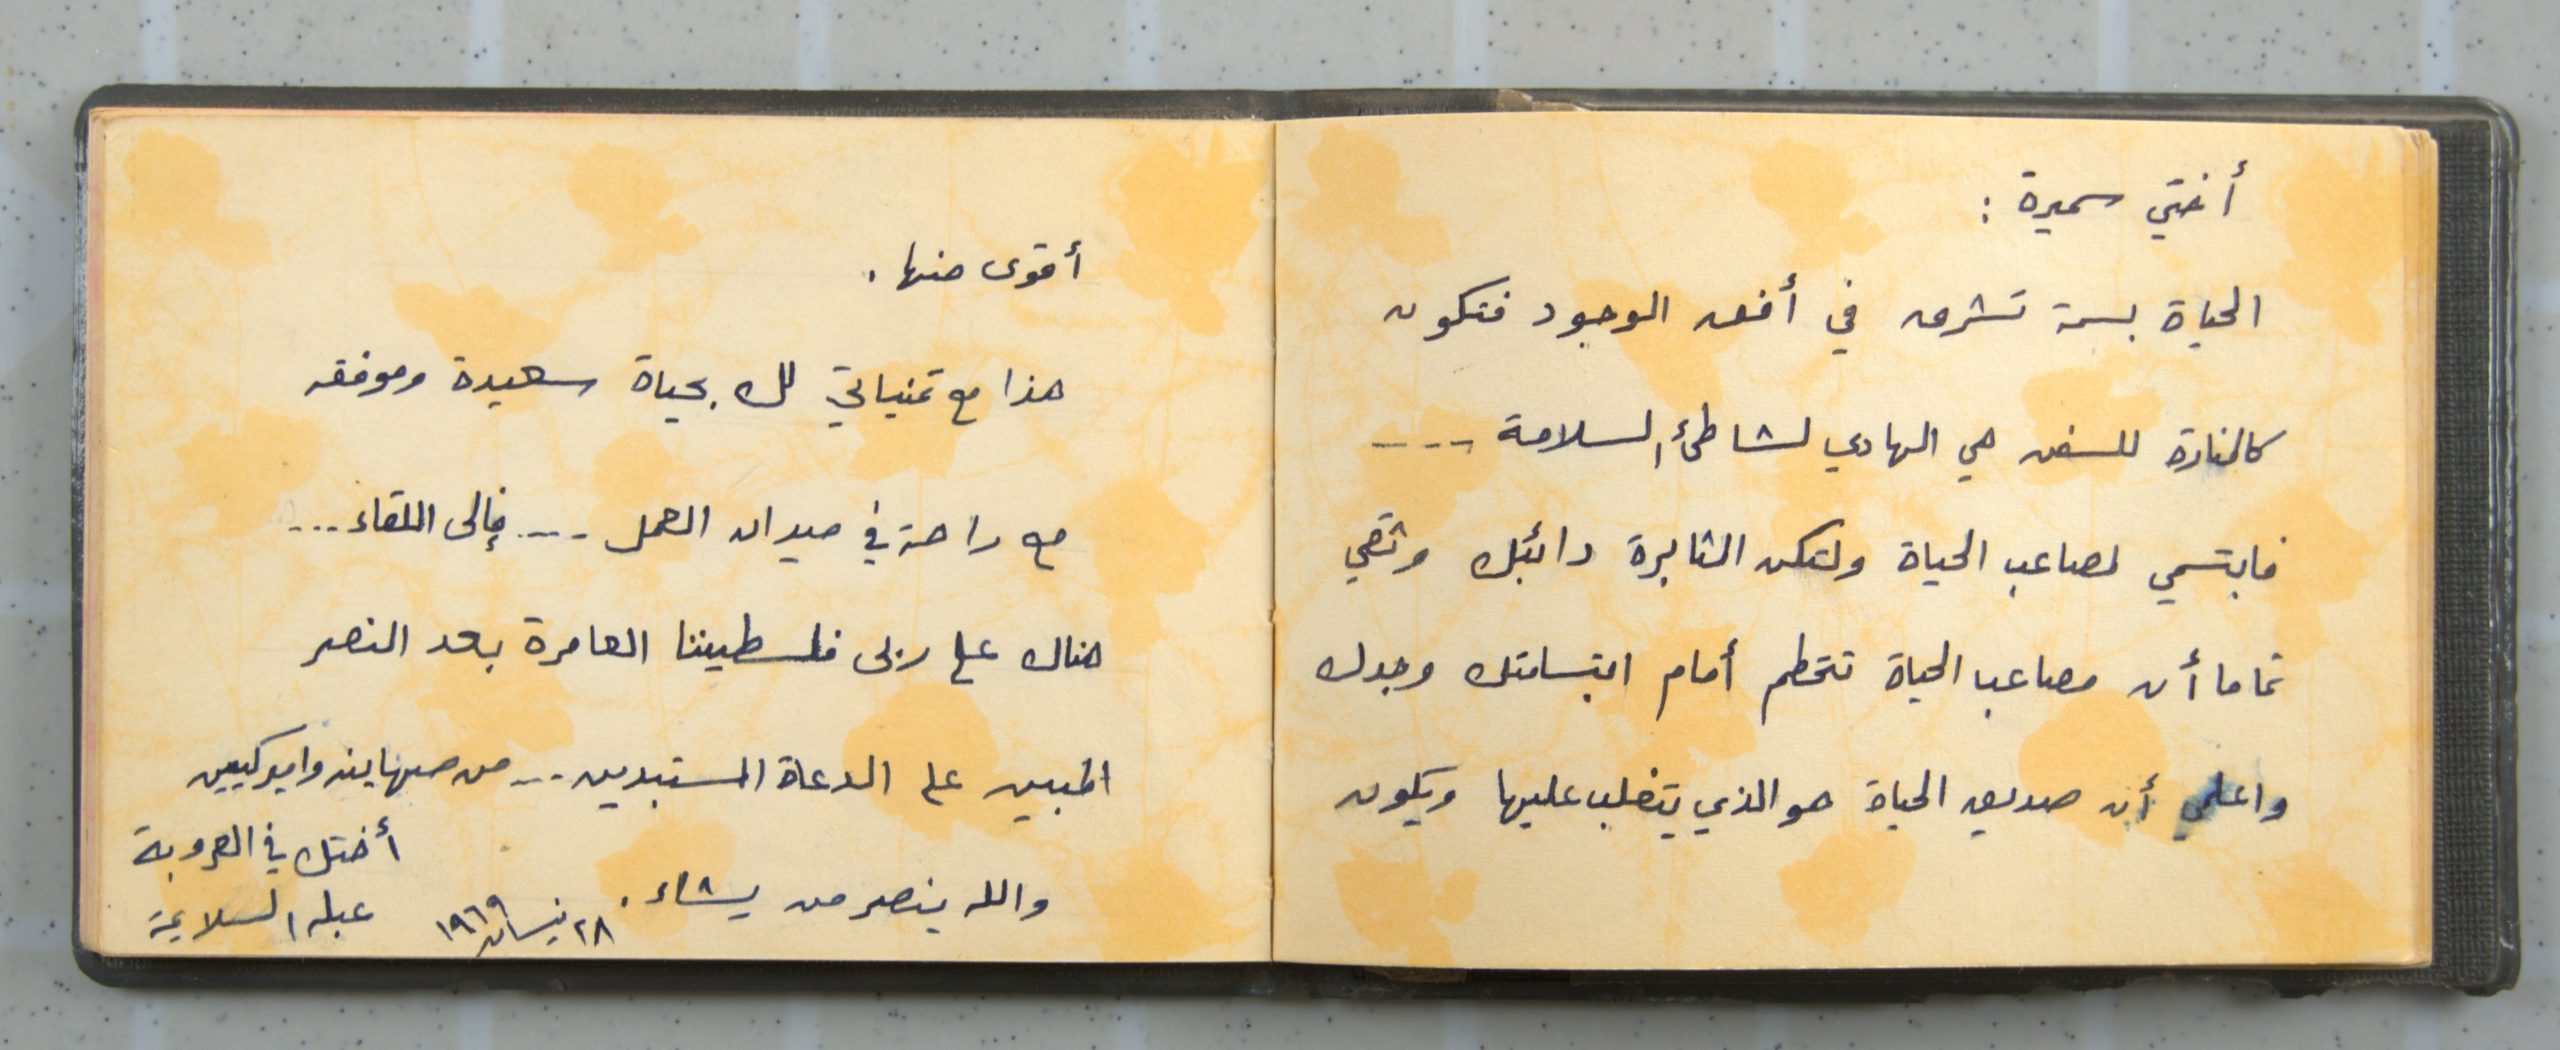 أختي سميرة :
الحياة بسمة تشرق في أفق الوجود فتكون
كالمنارة للسفن هي الهادي لشاطئ السلامة ----
فابتسمي لمصاعب الحياة ولتكن المثابرة دائبك وثقي
تماما أن مصاعب الحياة تتحطم أمام ابتسامتك وجدك
واعلمي أن صديق الحياة هو الذي يتغلب عليها ويكون
أقوى منها .
هذا مع تمنياتي لك بحياة سعيدة وموفقه
مع راحة في ميدان العمل ---- فإلى اللقاء ...
هناك على ربى فلسطيننا العامرة بعد النصر
المبين على الدعاة المستبدين --- من صهاينه واميركيين
والله ينصر من يشاء .
أختك في العروبة
عبله السلايمة
٢٨ نيسان ١٩٦٩